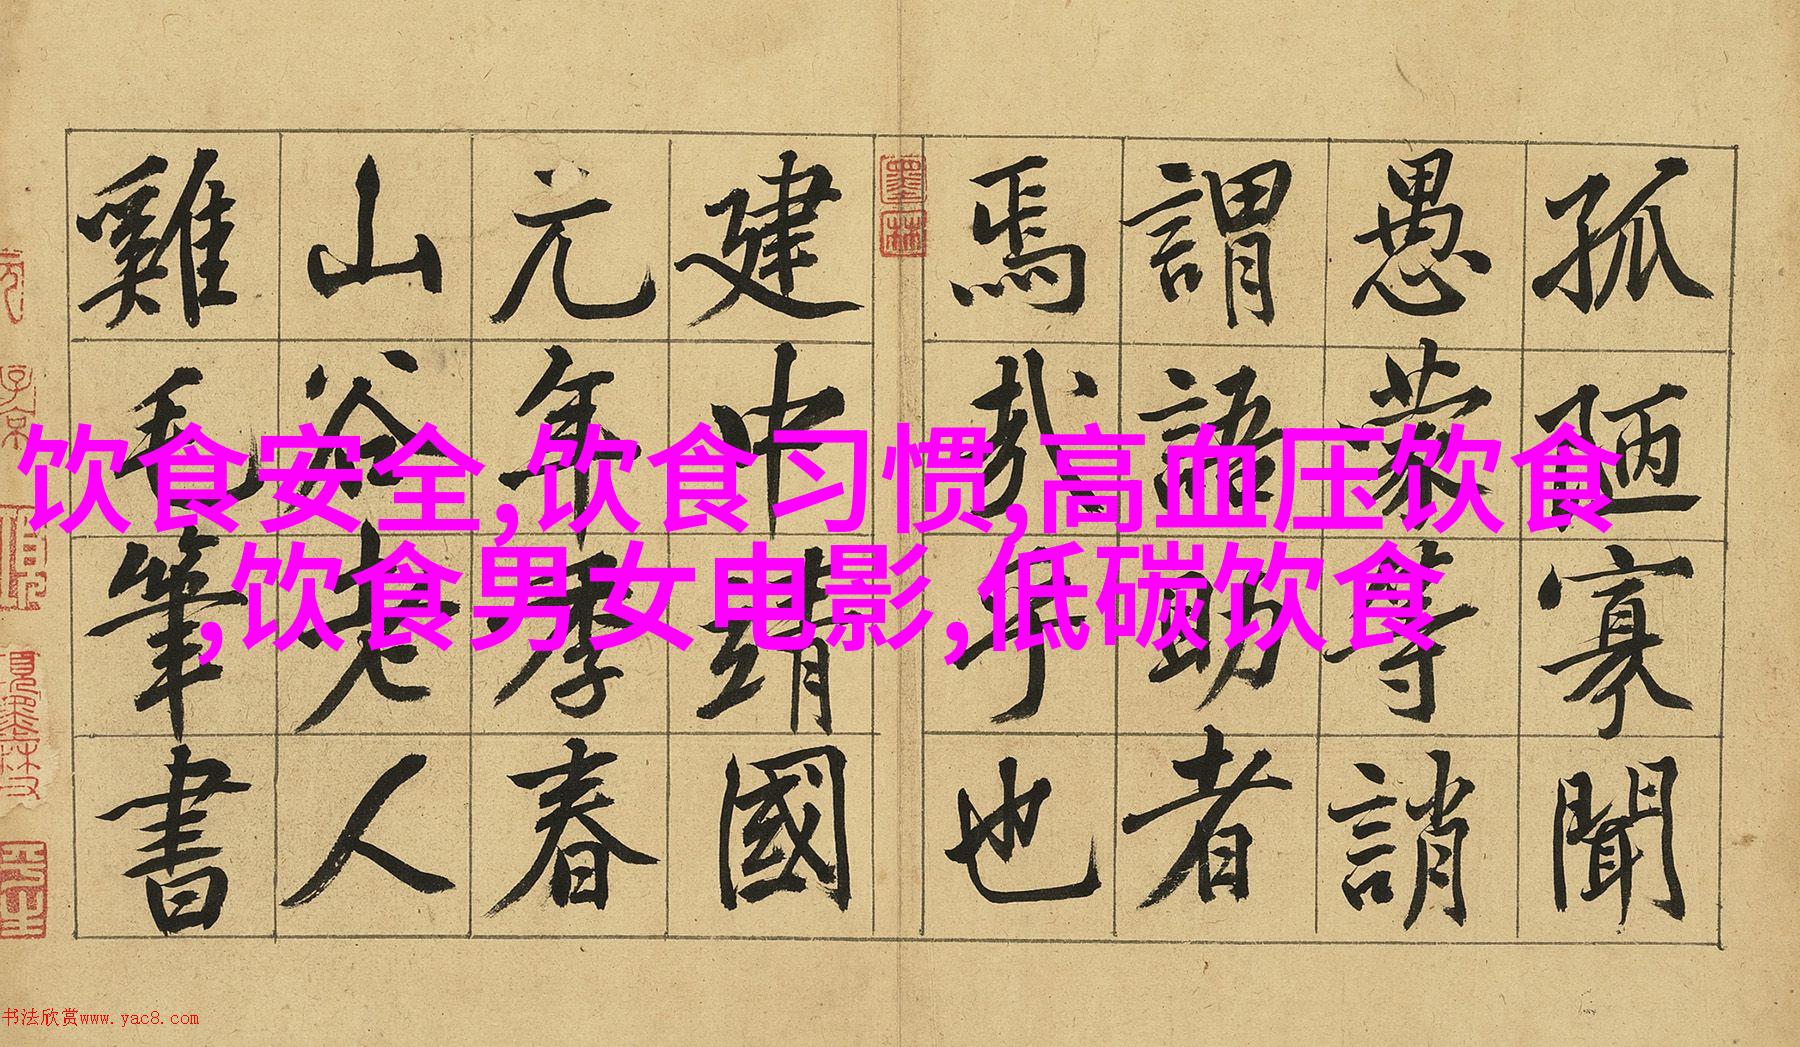 孤陋寡聞
愚蒙等誚
謂語助者
焉哉乎也
墨林
建中靖國
元年季春
山谷老人
雞毛筆書
饮食安全,饮食习惯,高血压饮食
,饮食男女电影,低碳饮食
书法欣赏www.yac8.com